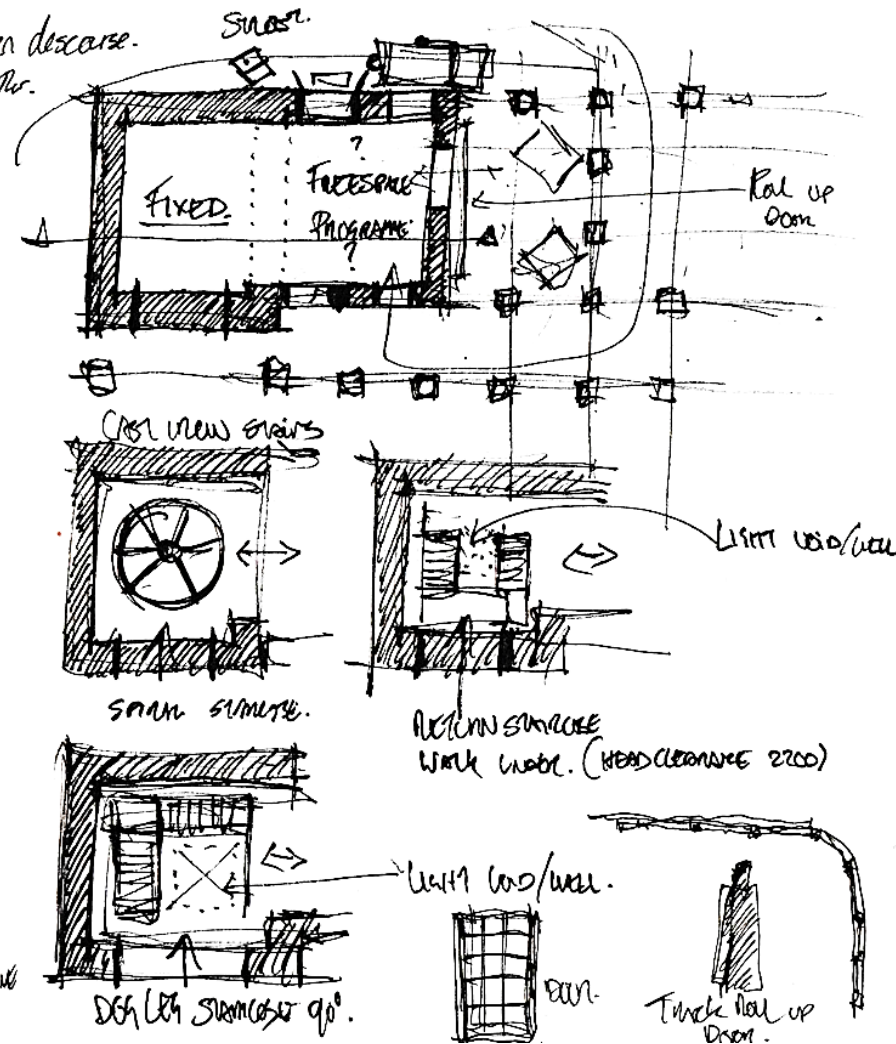 en descourse.
FIXED.
FREESPACE
PROGRAMME
?
?
Roll up
Door
CAST IREN STAIRS
LIGHT VOID/WELL
SPIRAL STAIRCASE.
RETURN STAIRCASE
WALK UNDER. (HEAD CLEARANCE 2200)
LIGHT VOID/WELL.
DOOR.
DOG LEG STAIRCASE 90°.
Track Roll up
Door.